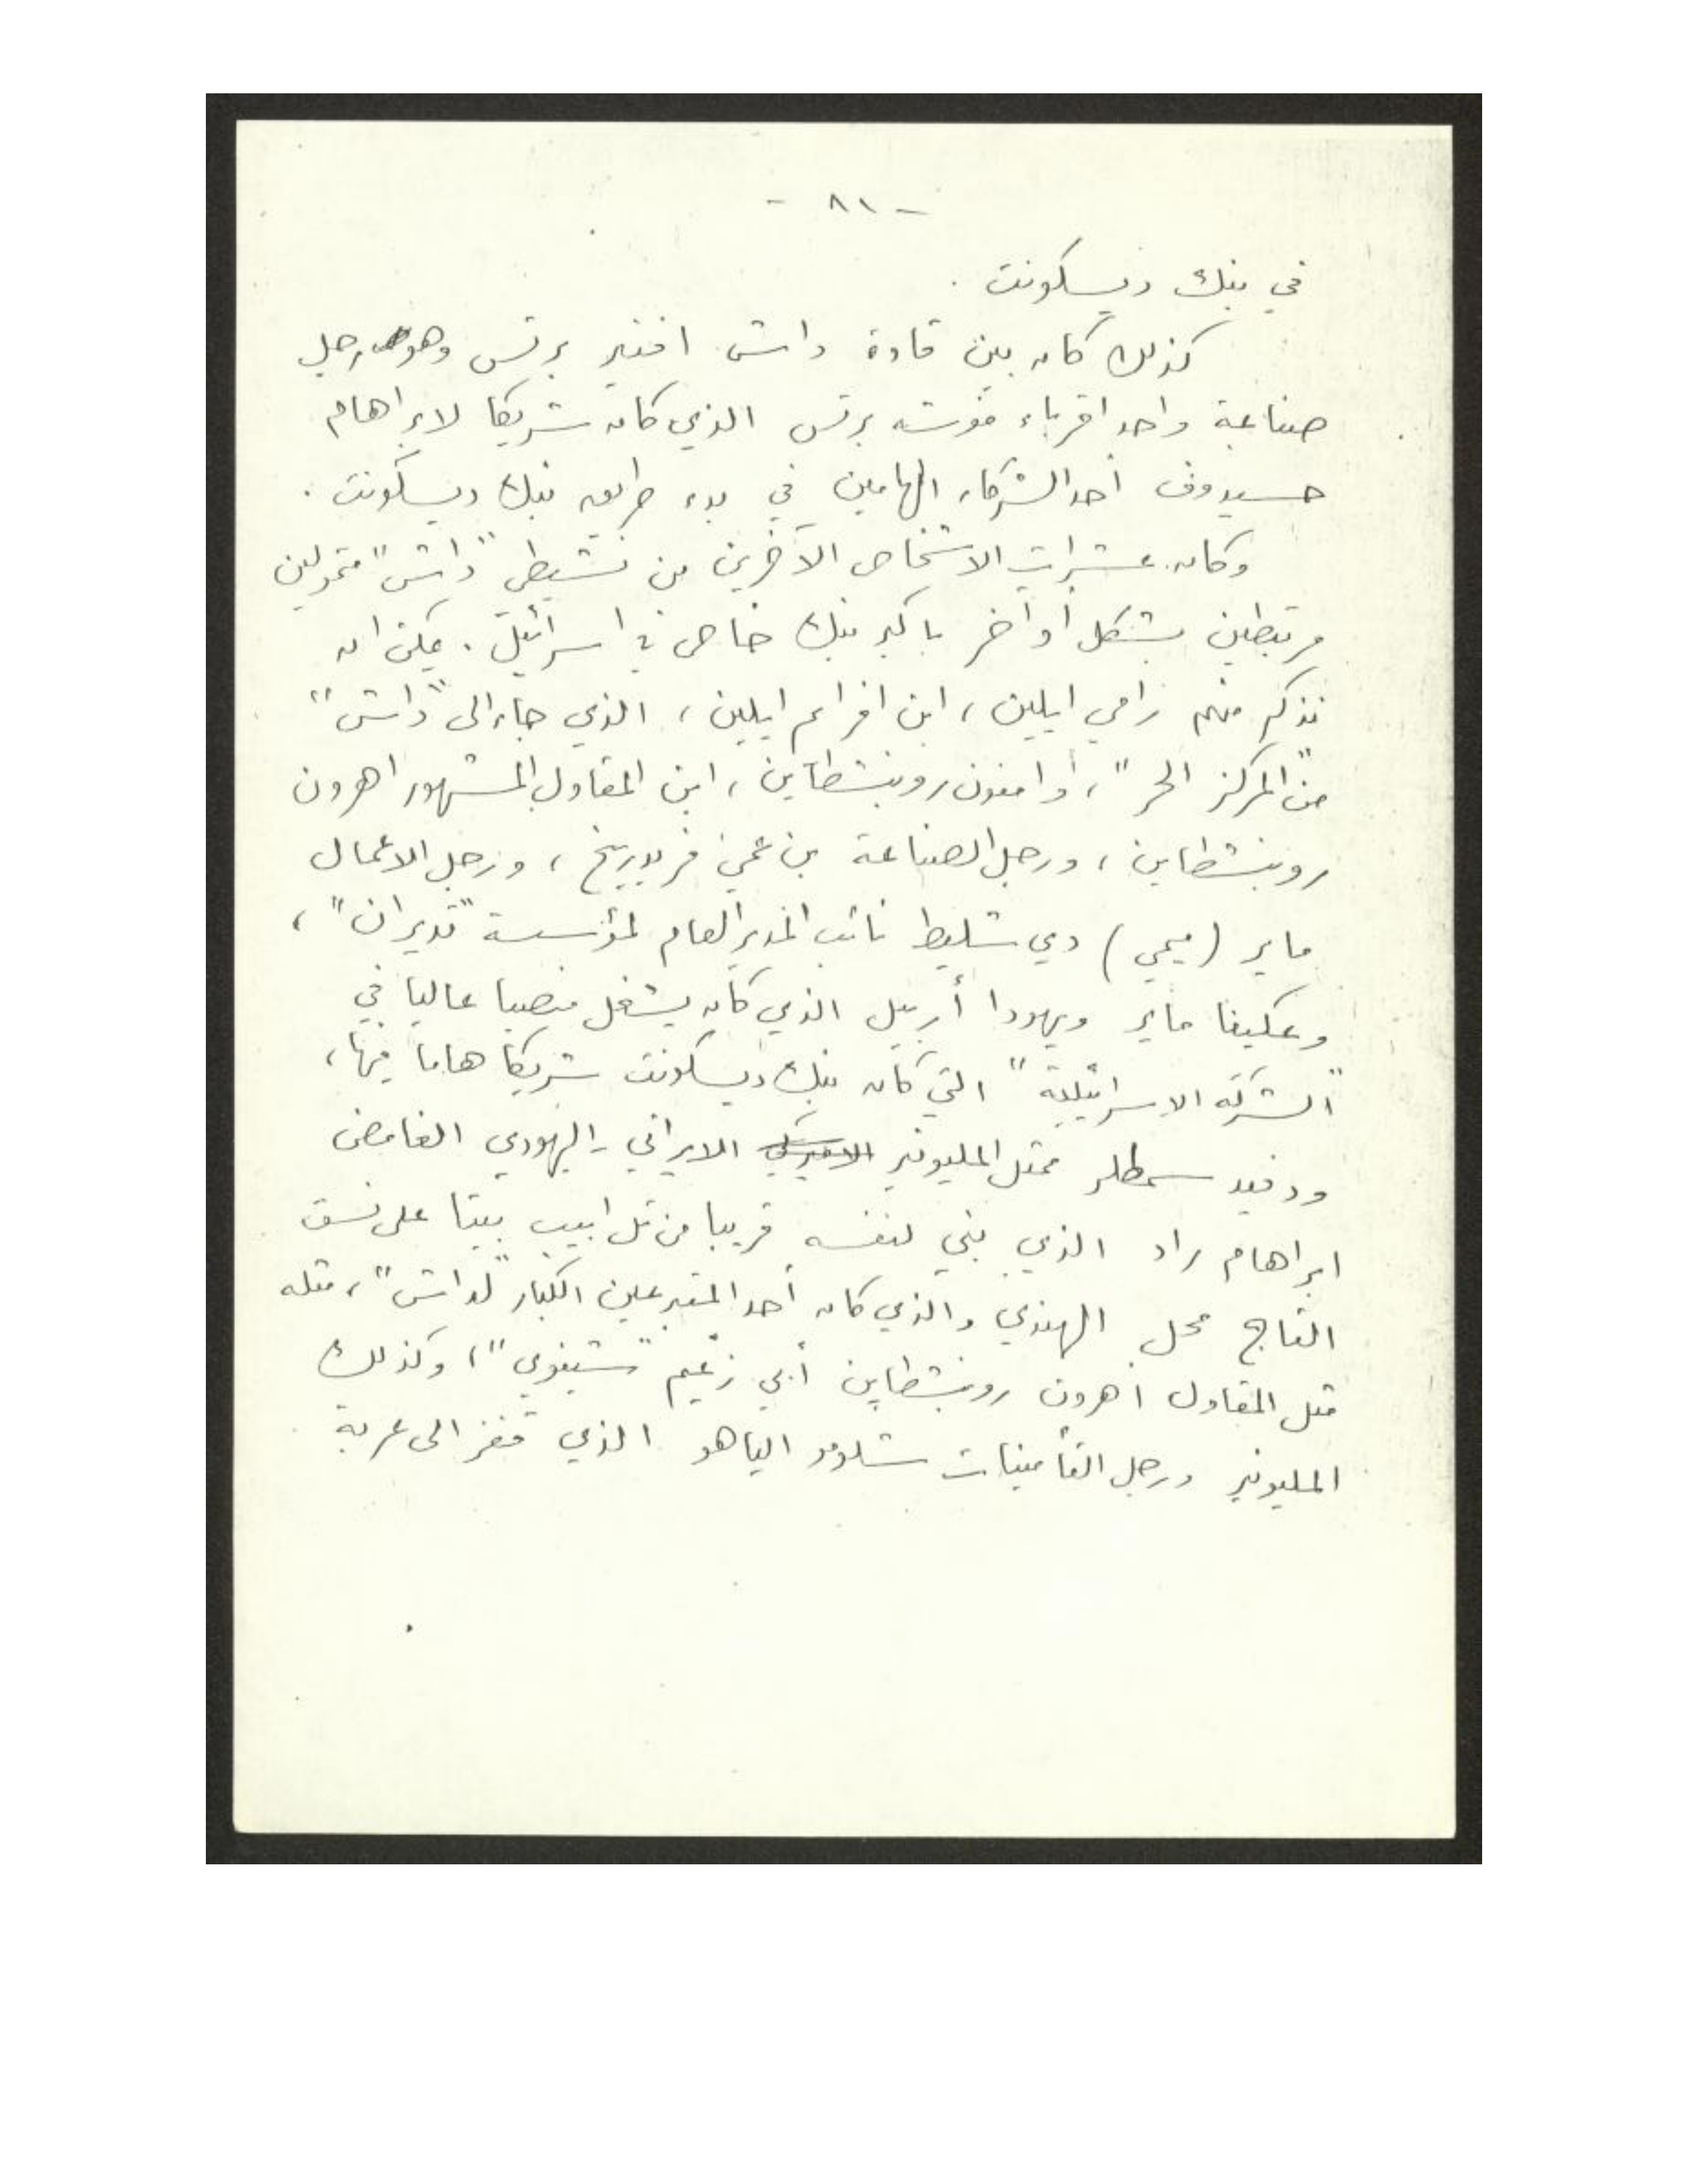 - ٨١ -
في بنك ديسكونت .
كذلك كان بين قادة داش افنير برتس وهو رجل
صناعة واحد اقرباء موشه برتس الذي كان شريكا لابراهام
حسيدوف أحد الشركاء الهامين في بدء طريق بنك ديسكونت .
وكان عشرات الاشخاص الآخرين من نشيطي "داش" متمولين
مرتبطين بشكل أو آخر باكبر بنك خاص في اسرائيل . يمكن ان
نذكر منهم رامي ايلين ، ابن افرايم ايلين ، الذي جاء الى "داش"
من "المركز الحر" ، وامنون روبنشطاين ، ابن المقاول المشهور اهرون
روبنشطاين ، ورجل الصناعة بن عمي فريدريخ ، ورجل الاعمال
ماير (ميمي) دي شليط نائب المدير العام لمؤسسة "تديران" ،
وعكيفا ماير ويهودا أربيل الذي كان يشغل منصبا عاليا في
"الشركة الاسرائيلية" التي كان بنك ديسكونت شريكا هاما فيها ،
ودفيد سمطلر ممثل المليونير الايراني - اليهودي الغامض
ابراهام راد الذي بني لنفسه قريبا من تل ابيب بيتا على نسق
التاج محل الهندي والذي كان أحد المتبرعين الكبار "لداش" ، مثله
مثل المقاول اهرون روبنشطاين أبي زعيم "شينوي" ، وكذلك
المليونير ورجل التأمينات شلومو الياهو الذي قفز الى عربة